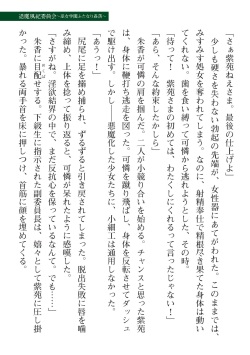 退魔風紀委員会～巫女学園ふたなり姦落～
「さぁ紫苑ねえさま。最後の仕上げよ」
少しも硬さを失わない勃起の先端が、女性器にあてがわれた。このままでは、
みすみす処女を奪われてしまう。なのに、射精奉仕で精根尽き果てた身体は動い
てくれない。歯を食い縛って可憐から逃れようとした、その時。
「待って！　紫苑さまの初めては、わたしにくれるって言ったじゃない！」
「あら、そんな約束したかしら」
朱香が可憐の肩を掴んだ。二人が小競り合いを始める。チャンスと思った紫苑
は、身体に鞭打ち逃走を図った。可憐を蹴り飛ばし、身体を反転させてダッシュ
で駆け出す。しかし――悪魔化した少女たちに、小細工は通用しなかった。
「あぅっ！」
尻尾に足を搦め捕られ、ずるずると引き戻された。脱出失敗に唇を噛
み締め、上体を捻って振り返ると、可憐が呆れたように感嘆した。
「さすがね。淫欲結界の中で、まだ反抗心を保っているなんて。でも……」
朱香に目配せする。下級生に指示された副委員長は、嬉々として紫苑に圧し掛
かった。暴れる両手首を床に押しつけ、首筋に顔を埋めてくる。